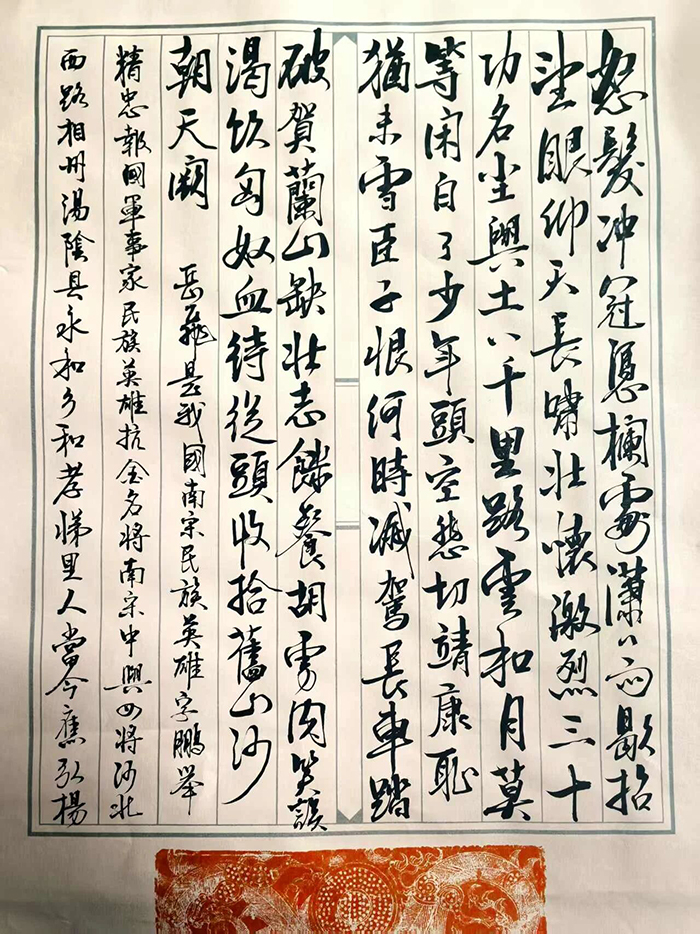 怒髮冲冠憑欄處瀟〻雨歇抬
望眼仰天長嘯壯懷激烈三十
功名尘與土八千里路雲和月莫
等闲白了少年頭空悲切靖康耻
猶未雪臣子恨何時滅駕長車踏
破賀蘭山缺壮志饑餐胡虏肉笑談
渴饮匈奴血待從頭收拾舊山河
朝天阙 岳飛是我國南宋民族英雄字鵬举
精忠報國軍事家民族英雄抗金名將南宋中興四將河北
西路相州湯陰县永和乡和孝悌里人當今應弘楊